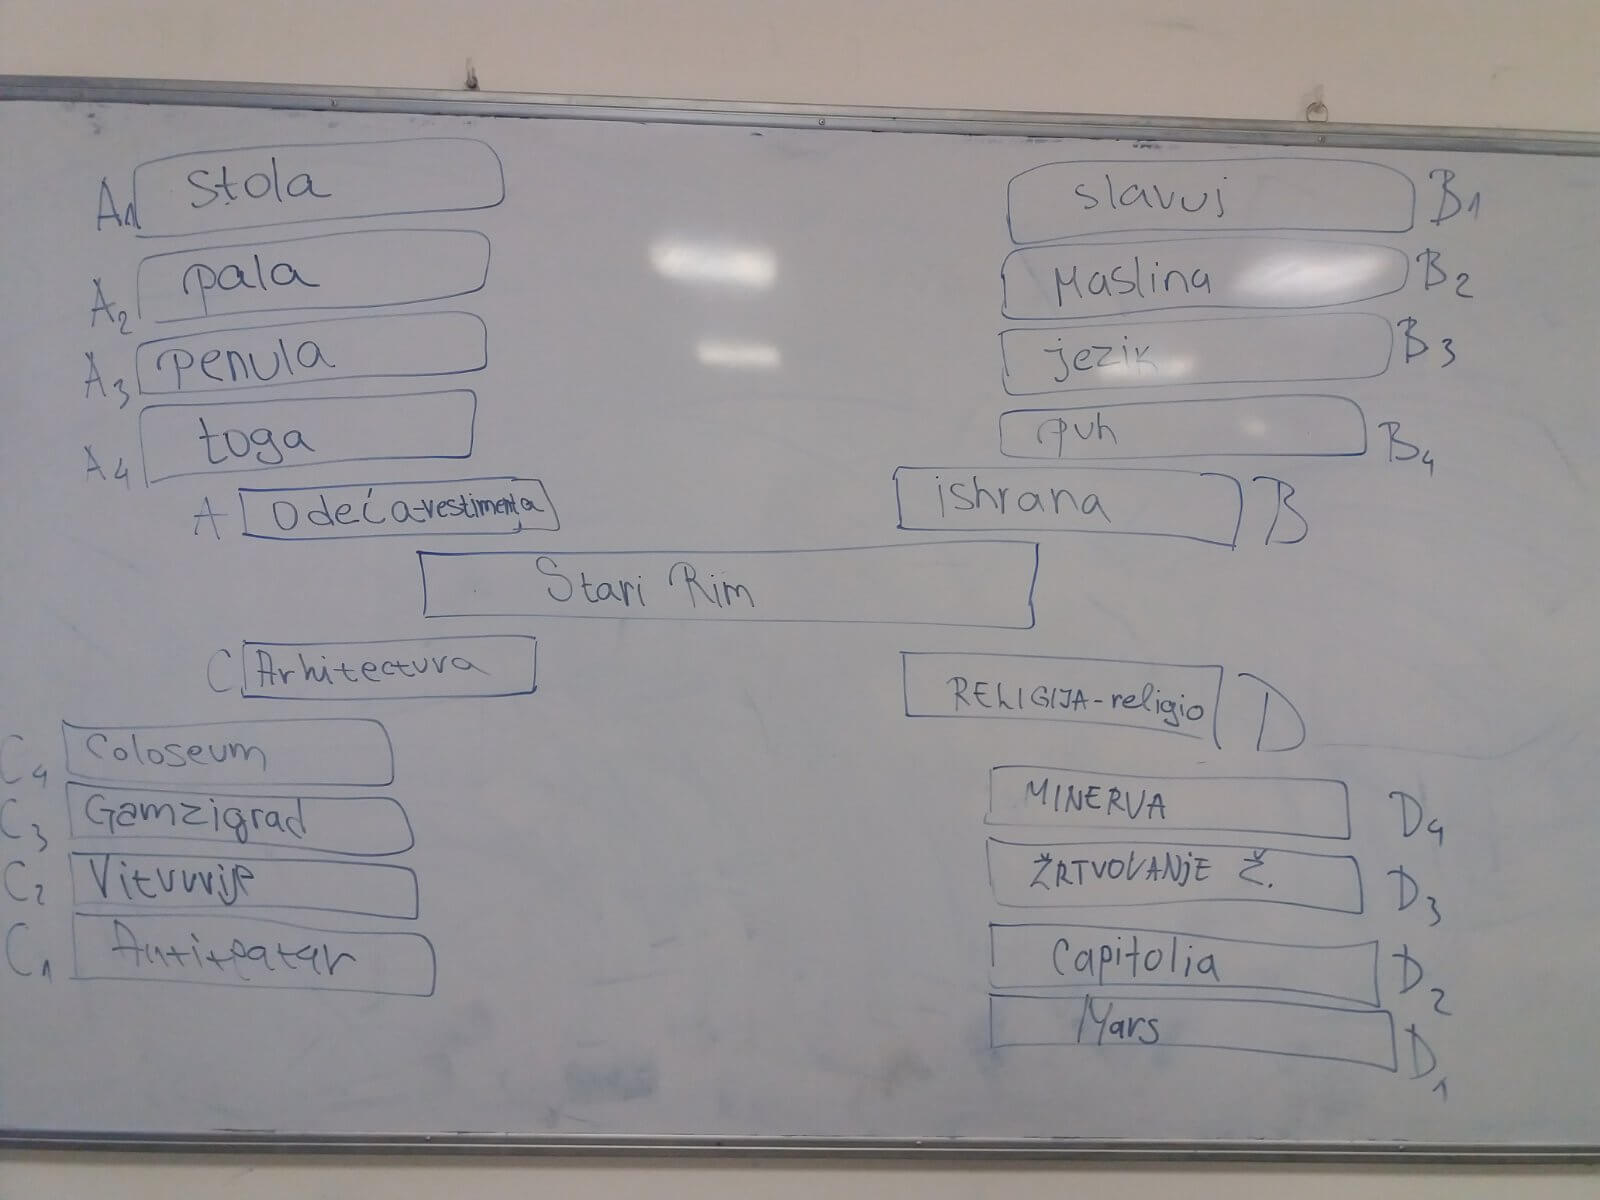 A1 stola
A2 pala
A3 penula
A4 toga
A Odeća-vestimenta
slavuj B1
Maslina B2
jezik B3
puh B4
ishrana B
Stari Rim
C Arhitectura
C4 Coloseum
C3 Gamzigrad
C2
C1
RELIGIJA-religio D
MINERVA D4
ŽRTVOVANjE Ž. D3
Capitolia D2
Mars D1